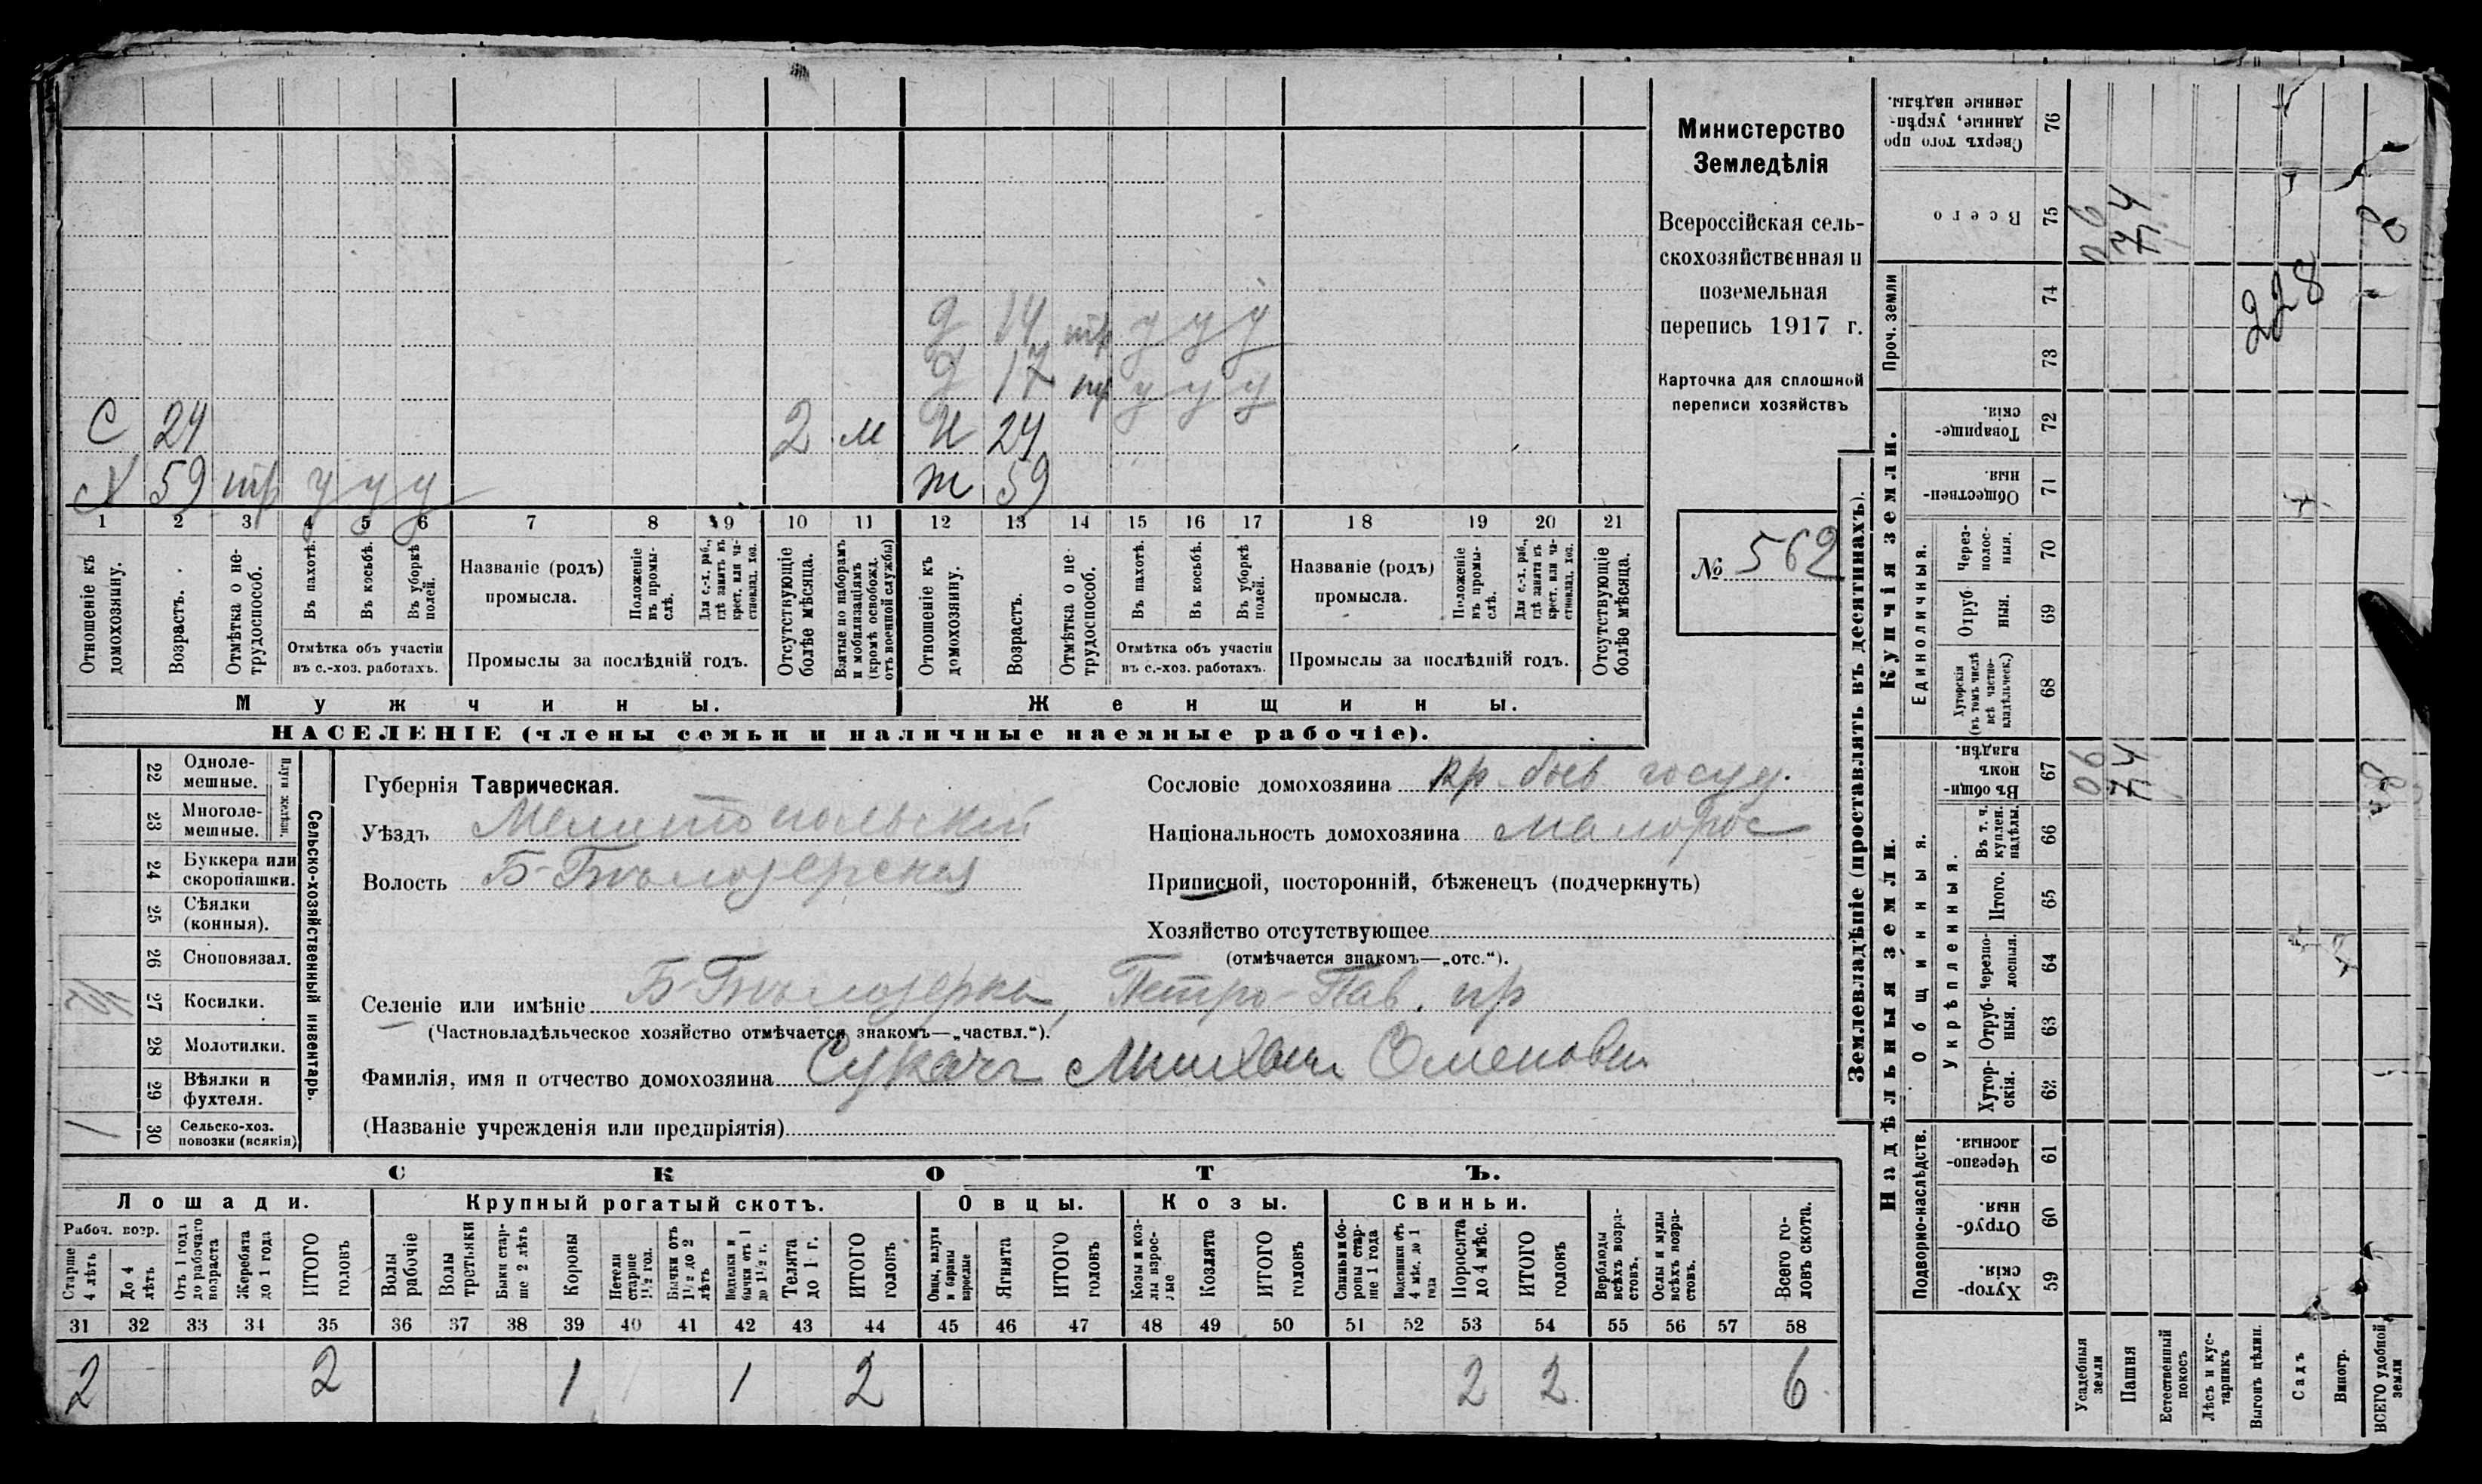 Министерство
Земледѣлія
Всероссійская сель-
скохозяйственная и
поземельная
перепись 1917 г.
Карточка для сплошной
переписи хозяйствъ
№ 562
д 14 тр у у у
д 17 тр у у у
С 24 2 м Н 24
Х 59 тр у у у ж 59
1 2 3 4 5 6 7 8 9 10 11 12 13 14 15 16 17 18 19 20 21
Отношеніе къ домохозяину.
Возрастъ.
Отмѣтка о не-трудоспособ.
Въ пахотѣ.
Въ косьбѣ.
Въ уборкѣ полей.
Отмѣтка объ участіи въ с.-хоз. работахъ.
Названіе (родъ) промысла.
Положеніе въ промы-слѣ.
Для с.-х. раб., гдѣ занятъ въ крест. или ча-стновлад. хоз.
Промыслы за послѣдній годъ.
Отсутствующіе болѣе мѣсяца.
Взятые по наборамъ и мобилизаціямъ (кромѣ освобожд. отъ военной службы)
Отношеніе къ домохозяину.
Возрастъ.
Отмѣтка о не-трудоспособ.
Въ пахотѣ.
Въ косьбѣ.
Въ уборкѣ полей.
Отмѣтка объ участіи въ с.-хоз. работахъ.
Названіе (родъ) промысла.
Положеніе въ промы-слѣ.
Для с.-х. раб., гдѣ занята въ крест. или ча-стновлад. хоз.
Промыслы за послѣдній годъ.
Отсутствующіе болѣе мѣсяца.
Мужчины. Женщины.
НАСЕЛЕНІЕ (члены семьи и наличные наемные рабочіе).
Сельско-хозяйственный инвентарь.
Плуги желѣзн.
22 Однолемешные.
23 Многолемешные.
24 Буккера или скоропашки.
25 Сѣялки (конныя).
26 Сноповязал.
27 Косилки. 1/2
28 Молотилки.
29 Вѣялки и фухтеля.
30 Сельско-хоз. повозки (всякія) 1
Губернія Таврическая.
Уѣздъ Мелитопольскій
Волость Б-Бѣлозерская
Селеніе или имѣніе Б-Бѣлозерка, Петро-Пав. пр
(Частновладѣльческое хозяйство отмѣчается знакомъ—„частвл.“).
Фамилія, имя и отчество домохозяина Сукачъ Михаил Семенович
(Названіе учрежденія или предпріятія)
Сословіе домохозяина кр. быв госуд.
Національность домохозяина малорос
Приписной, посторонній, бѣженецъ (подчеркнуть)
Хозяйство отсутствующее
(отмѣчается знакомъ—„отс.“).
СКОТЪ.
Лошади. Крупный рогатый скотъ. Овцы. Козы. Свиньи.
Рабоч. возр.
Старше 4 лѣтъ
До 4 лѣтъ
Отъ 1 года до рабочаго возраста
Жеребята до 1 года
ИТОГО головъ
Волы рабочіе
Волы третьяки
Быки стар-ше 2 лѣтъ
Коровы
Нетели старше 1½ год.
Бычки отъ 1½ до 2 лѣтъ
Подтелки и бычки отъ 1 до 1½ г.
Телята до 1 г.
ИТОГО головъ
Овцы, валухи и бараны взрослые
Ягнята
ИТОГО головъ
Козы и коз-лы взрос-лые
Козлята
ИТОГО головъ
Свиньи и бо-ровы стар-ше 1 года
Подсвинки отъ 4 мѣс. до 1 года
Поросята до 4 мѣс.
ИТОГО головъ
Верблюды всѣхъ возра-стовъ.
Ослы и мулы всѣхъ возра-стовъ.
Всего го-ловъ скота.
31 32 33 34 35 36 37 38 39 40 41 42 43 44 45 46 47 48 49 50 51 52 53 54 55 56 57 58
2 2 1 1 2 2 2 6
Землевладѣніе (проставлять въ десятинахъ).
Надѣльныя земли. Купчія земли. Проч. земли
Подворно-наслѣдств. Общинныя. Единоличныя.
Укрѣпленныя.
Хутор-скія. 59
Отруб-ныя. 60
Черезпо-лосныя. 61
Хутор-скія. 62
Отруб-ныя. 63
Черезпо-лосныя. 64
Итого. 65
Въ т. ч. куплен. надѣлы. 66
Въ общи-номъ владѣн. 67
Хуторскія (въ томъ числѣ всѣ частно-владѣльческ.) 68
Отруб-ныя. 69
Через-полос-ныя. 70
Обществен-ныя 71
Товарище-скія. 72
73
74
Всего 75
Сверхъ того про-данные, укрѣп-ленные надѣлы. 76
Усадебныя земли 06 06
Пашня 74 74
Естественный покосъ
Лѣсъ и кус-тарникъ
Выгонъ цѣлин.
Садъ
Виногр.
ВСЕГО удобной земли
228